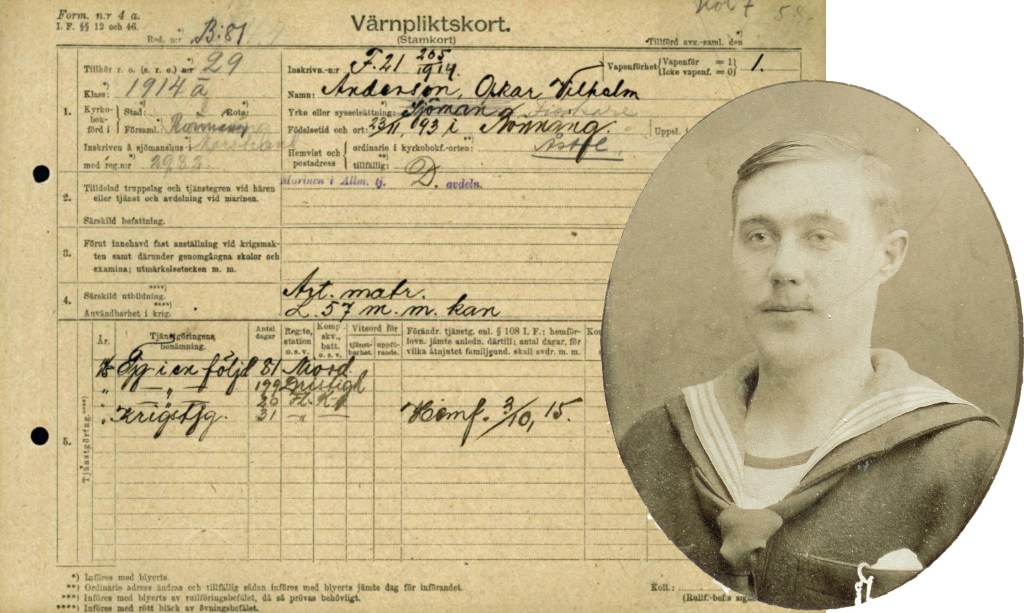 Form. n:r 4 a.
I. F. §§ 12 och 46.
Värnpliktskort.
(Stamkort)
Red. n:r B:81
Tillförd avg.-saml. den
Tillhör r. o. (s. r. o.) n:r 29
Inskrivn.-n:r F. 21 205/1914.
Vapenförhet Vapenför = 1 Icke vapenf. = 0 1.
Klass: 1914 ä
Namn: Anderson, Oskar Vilhelm
1.
Kyrko-bok-förd i Stad: Rote:
Yrke eller sysselsättning: Sjöman
Församl.
Födelsetid och ort: 23/11, 93 i
Uppsl.
Inskriven å sjömanshus i
Hemvist och postadress
ordinarie i kyrkobokf.-orten:
med reg.nr 2982.
tillfällig: D.
2.
Tilldelad truppslag och tjänstegren vid hären
eller tjänst och avdelning vid marinen.
Marinen i Allm. tj. avdeln.
Särskild befattning.
3.
Förut innehavd fast anställning vid krigsmak-
ten samt därunder genomgångna skolor och
examina; utmärkelsetecken m. m.
4.
Särskild utbildning.
Art. matr.
Användbarhet i krig.
L. 57 m. m. kan
År.
Tjänstgöringens
benämning.
Antal
dagar
Reg:te,
station
o. s. v.
Komp.
skv.,
batt.
o. s. v.
Vitsord för
tjänst-
barhet.
uppfö-
rande.
Förändr. tjänstg. enl. § 108 I. F.: hemför-
lovn. jämte anledn. därtill; antal dagar, för
vilka åtnjutet familjeund. skall avdr. m. m.
15 Tjg i en följd 81
" " 199
20
" Krigstjg. 31 " Hemf. 3/10, 15.
5.
Tjänstgöring.****)
*) Införes med blyerts.
**) Ordinarie adress ändras och tillfällig sådan införes med blyerts jämte dag för införandet.
***) Införes med blyerts av rullföringsbefälet, då så prövas behövligt.
****) Införes med rött bläck av övningsbefälet.
Koll.: